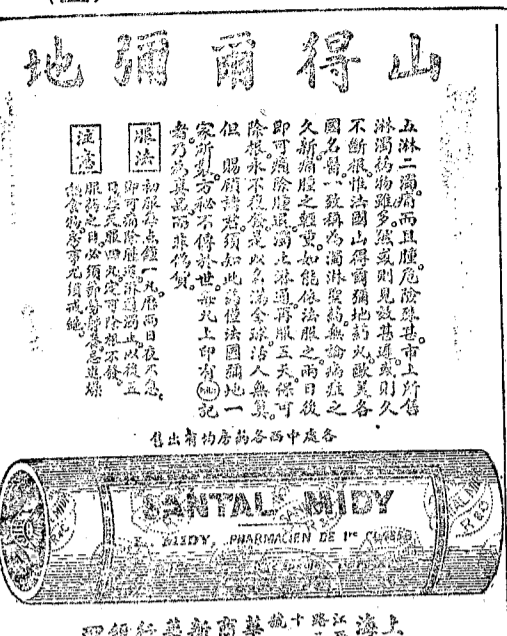 山得爾彌地
五淋二濁痛而且腫危險殊甚市上所售
淋濁藥物雖多然或則見效甚遲或則久
不斷根惟法國山得爾彌地藥丸歐美各
國名醫一致稱為濁淋聖藥無論病症之
久新痛腫之輕重如能依法服之兩日後
即可痛除腫退濁止淋通再服五天保可
除根永不復發是以名滿全球活人無算
但 賜顧諸君須知此藥位法國彌地一
家所製方秘不傳於世每丸上印有 MIDY 記
者乃為真品而非偽貨
服法
初服每點鐘一丸歷兩日夜不息
即可痛除腫退淋通濁止以後五
日每天服四丸定可除根不發
注意
服藥之日必須
飲食物房事尤須戒絕
各處中西各藥房均有出售
SANTAL MIDY
MIDY, PHARMACIEN DE 1re CLASSE
上海